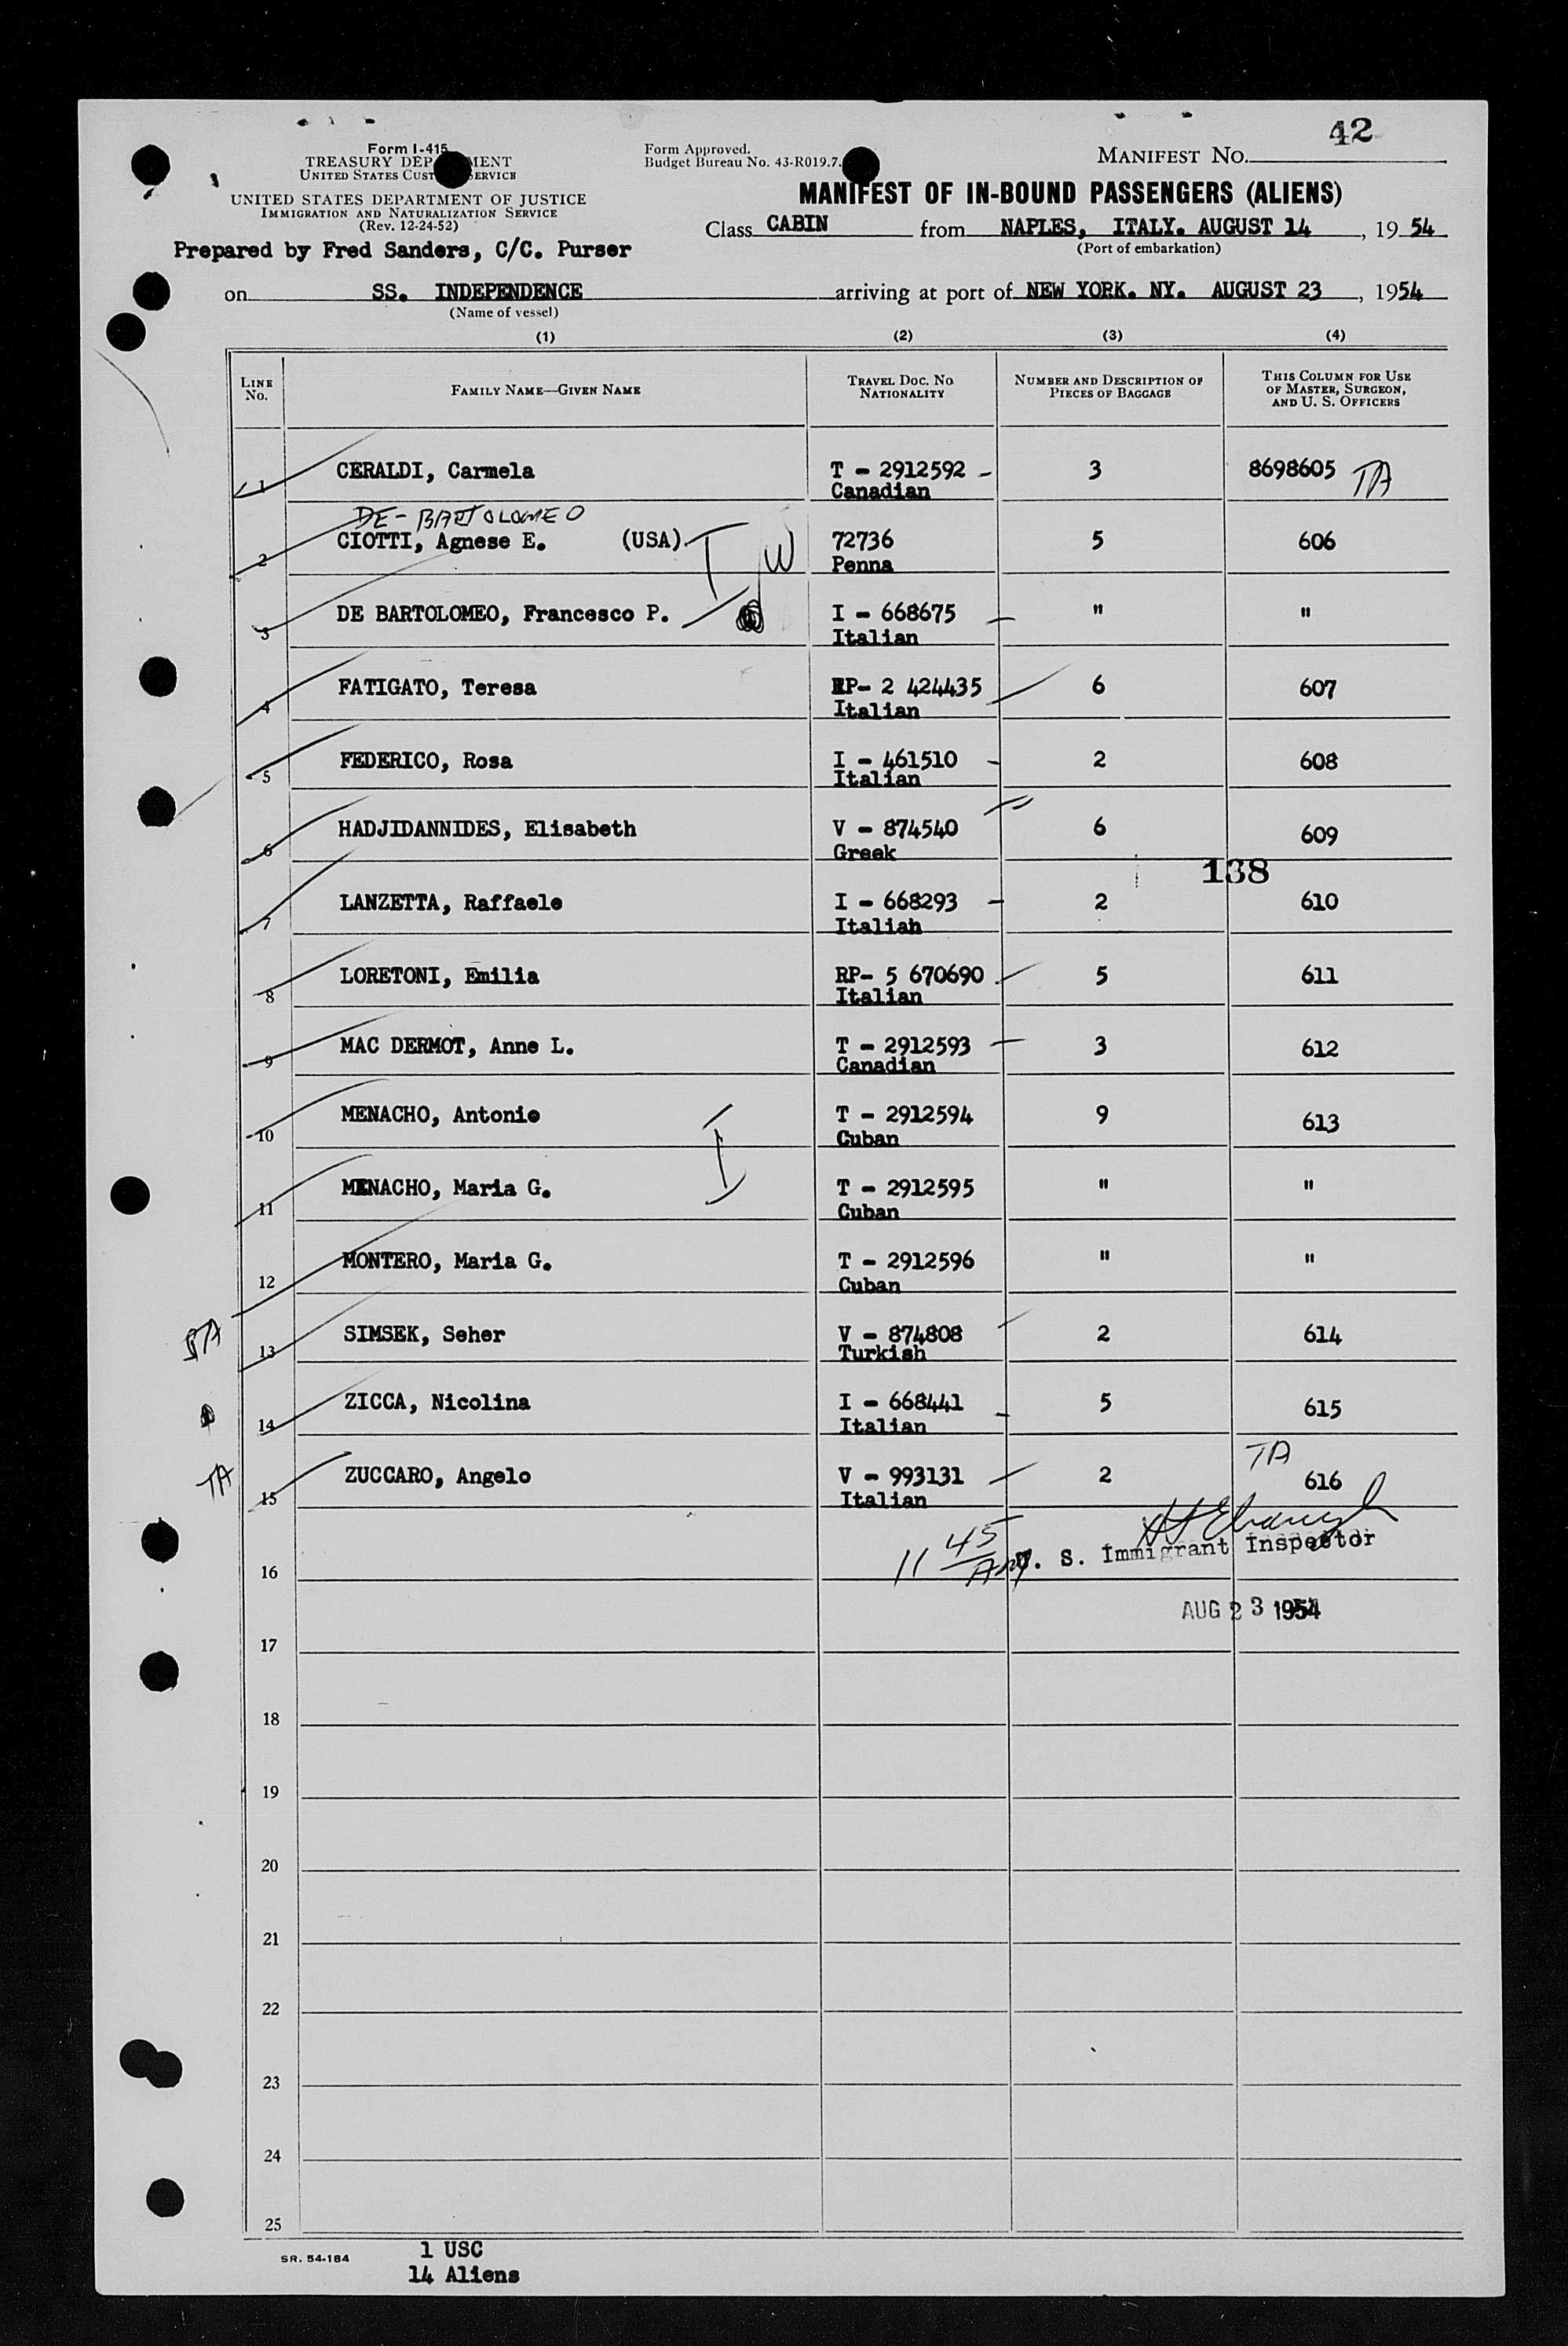 42
Form I-415
TREASURY DEP MENT
UNITED STATES CUST ERVICE
UNITED STATES DEPARTMENT OF JUSTICE
IMMIGRATION AND NATURALIZATION SERVICE
(Rev. 12-24-52)
Prepared by Fred Sanders, C/C. Purser
Form Approved.
Budget Bureau No. 43-R019.7.
MANIFEST NO.
MANIFEST OF IN-BOUND PASSENGERS (ALIENS)
Class CABIN from NAPLES, ITALY. AUGUST 14, 19 54
(Port of embarkation)
on SS. INDEPENDENCE arriving at port of NEW YORK. NY. AUGUST 23, 1954
(Name of vessel)
(1) (2) (3) (4)
LINE NO. FAMILY NAME—GIVEN NAME TRAVEL DOC. NO. NATIONALITY NUMBER AND DESCRIPTION OF PIECES OF BAGGAGE THIS COLUMN FOR USE OF MASTER, SURGEON, AND U. S. OFFICERS
1 CERALDI, Carmela T - 2912592 - 3 8698605 TA
Canadian
DE-BARTOLOMEO
2 CIOTTI, Agnese E. (USA) W 72736 5 606
Penna
3 DE BARTOLOMEO, Francesco P. I - 668675 " "
Italian
4 FATIGATO, Teresa RP- 2 424435 6 607
Italian
5 FEDERICO, Rosa I - 461510 2 608
Italian
6 HADJIDANNIDES, Elisabeth V - 874540 6 609
Greek
138
7 LANZETTA, Raffaele I - 668293 2 610
Italian
8 LORETONI, Emilia RP- 5 670690 5 611
Italian
9 MAC DERMOT, Anne L. T - 2912593 3 612
Canadian
10 MENACHO, Antonio T - 2912594 9 613
Cuban
11 MENACHO, Maria G. T - 2912595 " "
Cuban
12 MONTERO, Maria G. T - 2912596 " "
Cuban
13 SIMSEK, Seher V - 874808 2 614
Turkish
14 ZICCA, Nicolina I - 668441 5 615
Italian
TA
TA 15 ZUCCARO, Angelo V - 993131 2 616
Italian
11 45 AM U. S. Immigrant Inspector
16
AUG 23 1954
17
18
19
20
21
22
23
24
25
SR. 54-184
1 USC
14 Aliens